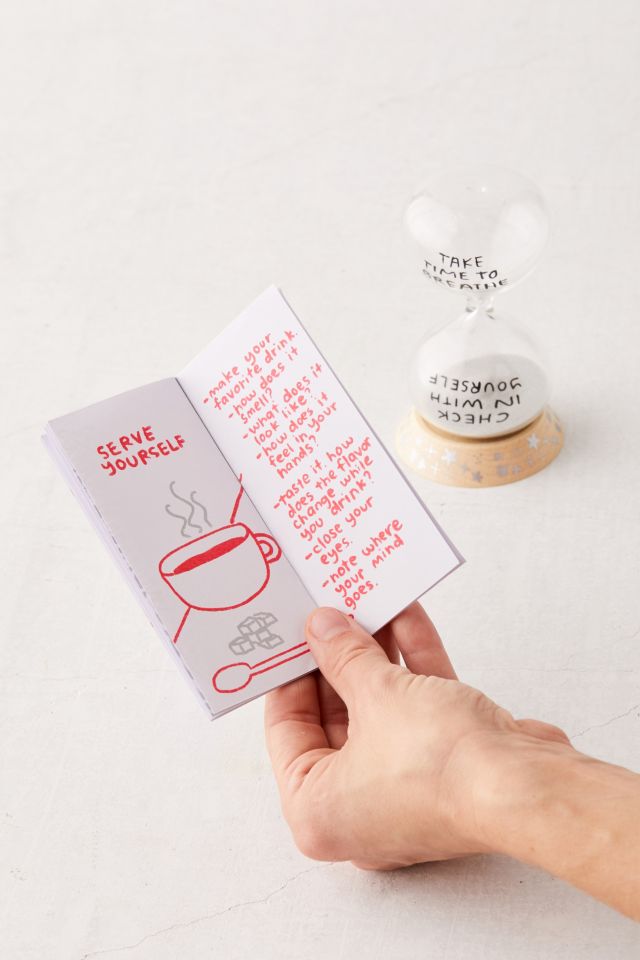 SERVE
YOURSELF
-make your
favorite drink.
-how does it
smell?
-what does it
look like?
-how does it
feel in your
hands?
-taste it. how
does the flavor
change while
you drink?
-close your
eyes.
-note where
your mind
goes.
TAKE
TIME TO
BREATHE
CHECK
IN WITH
YOURSELF